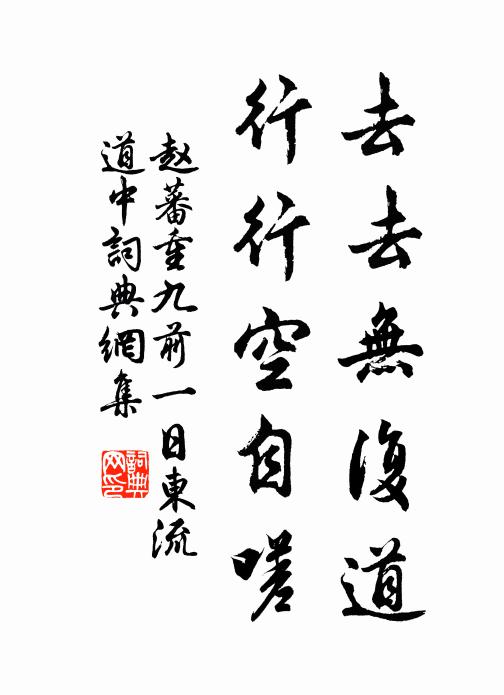 去去無復道
行行空自嗟
赵蕃重九前一日東流
道中詞典網集
詞典网印